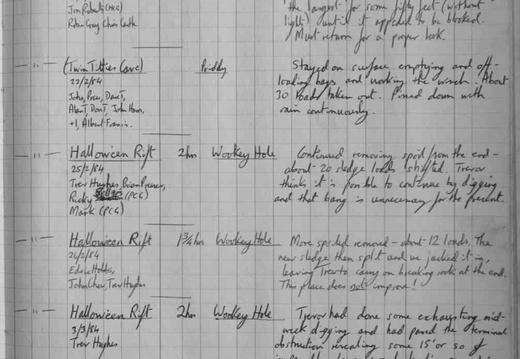 Jim Roberts (MCG)
the largest for some fifty feet (without
light) until it appeared to be blocked.
Must return for a proper look.
(Twin Titties Cave) Priddy
22/2/84
Alan T, Dom T, John Ham,
+1, Albert Francis.
Stayed on surface emptying and off-
loading bags and working the winch. About
30 loads taken out. Pissed down with
rain continuously.
-"- Halloween Rift 2hrs Wookey Hole
25/2/84
Trev Hughes, Brian Prewer,
Ricky (PCG)
Mark (PCG)
Continued removing spoil from the end -
about 20 sledge loads shifted. Trevor
thinks it is possible to continue by digging
and that bang is unnecessary for the present.
-"- Halloween Rift 1¾hrs Wookey Hole
26/2/84
John Chew, Trev Hughes
More spoiled removed - about 12 loads. The
new sledge then split and we jacked it in,
leaving Trev to carry on breaking rock at the end.
This place does not improve!
-"- Halloween Rift 2hrs Wookey Hole
3/3/84
Trev Hughes
Trevor had done some exhausting mid-
week digging and had passed the terminal
obstruction revealing some 15' or so of